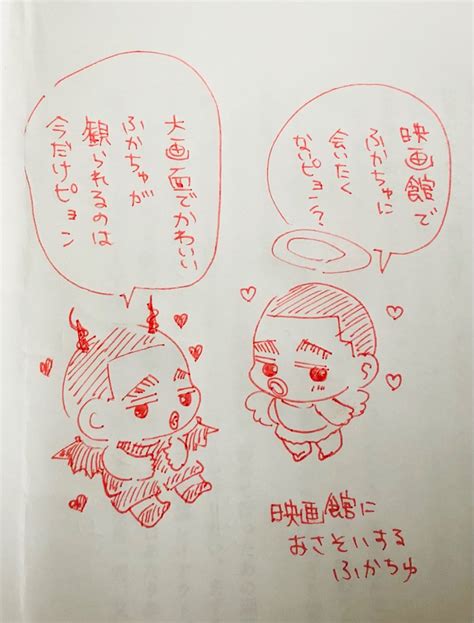 映画館で
ふかちゅに
会いたく
ないピョン?
大画面でかわいい
ふかちゅが
観られるのは
今だけピョン
映画館に
おさそいする
ふかちゅ